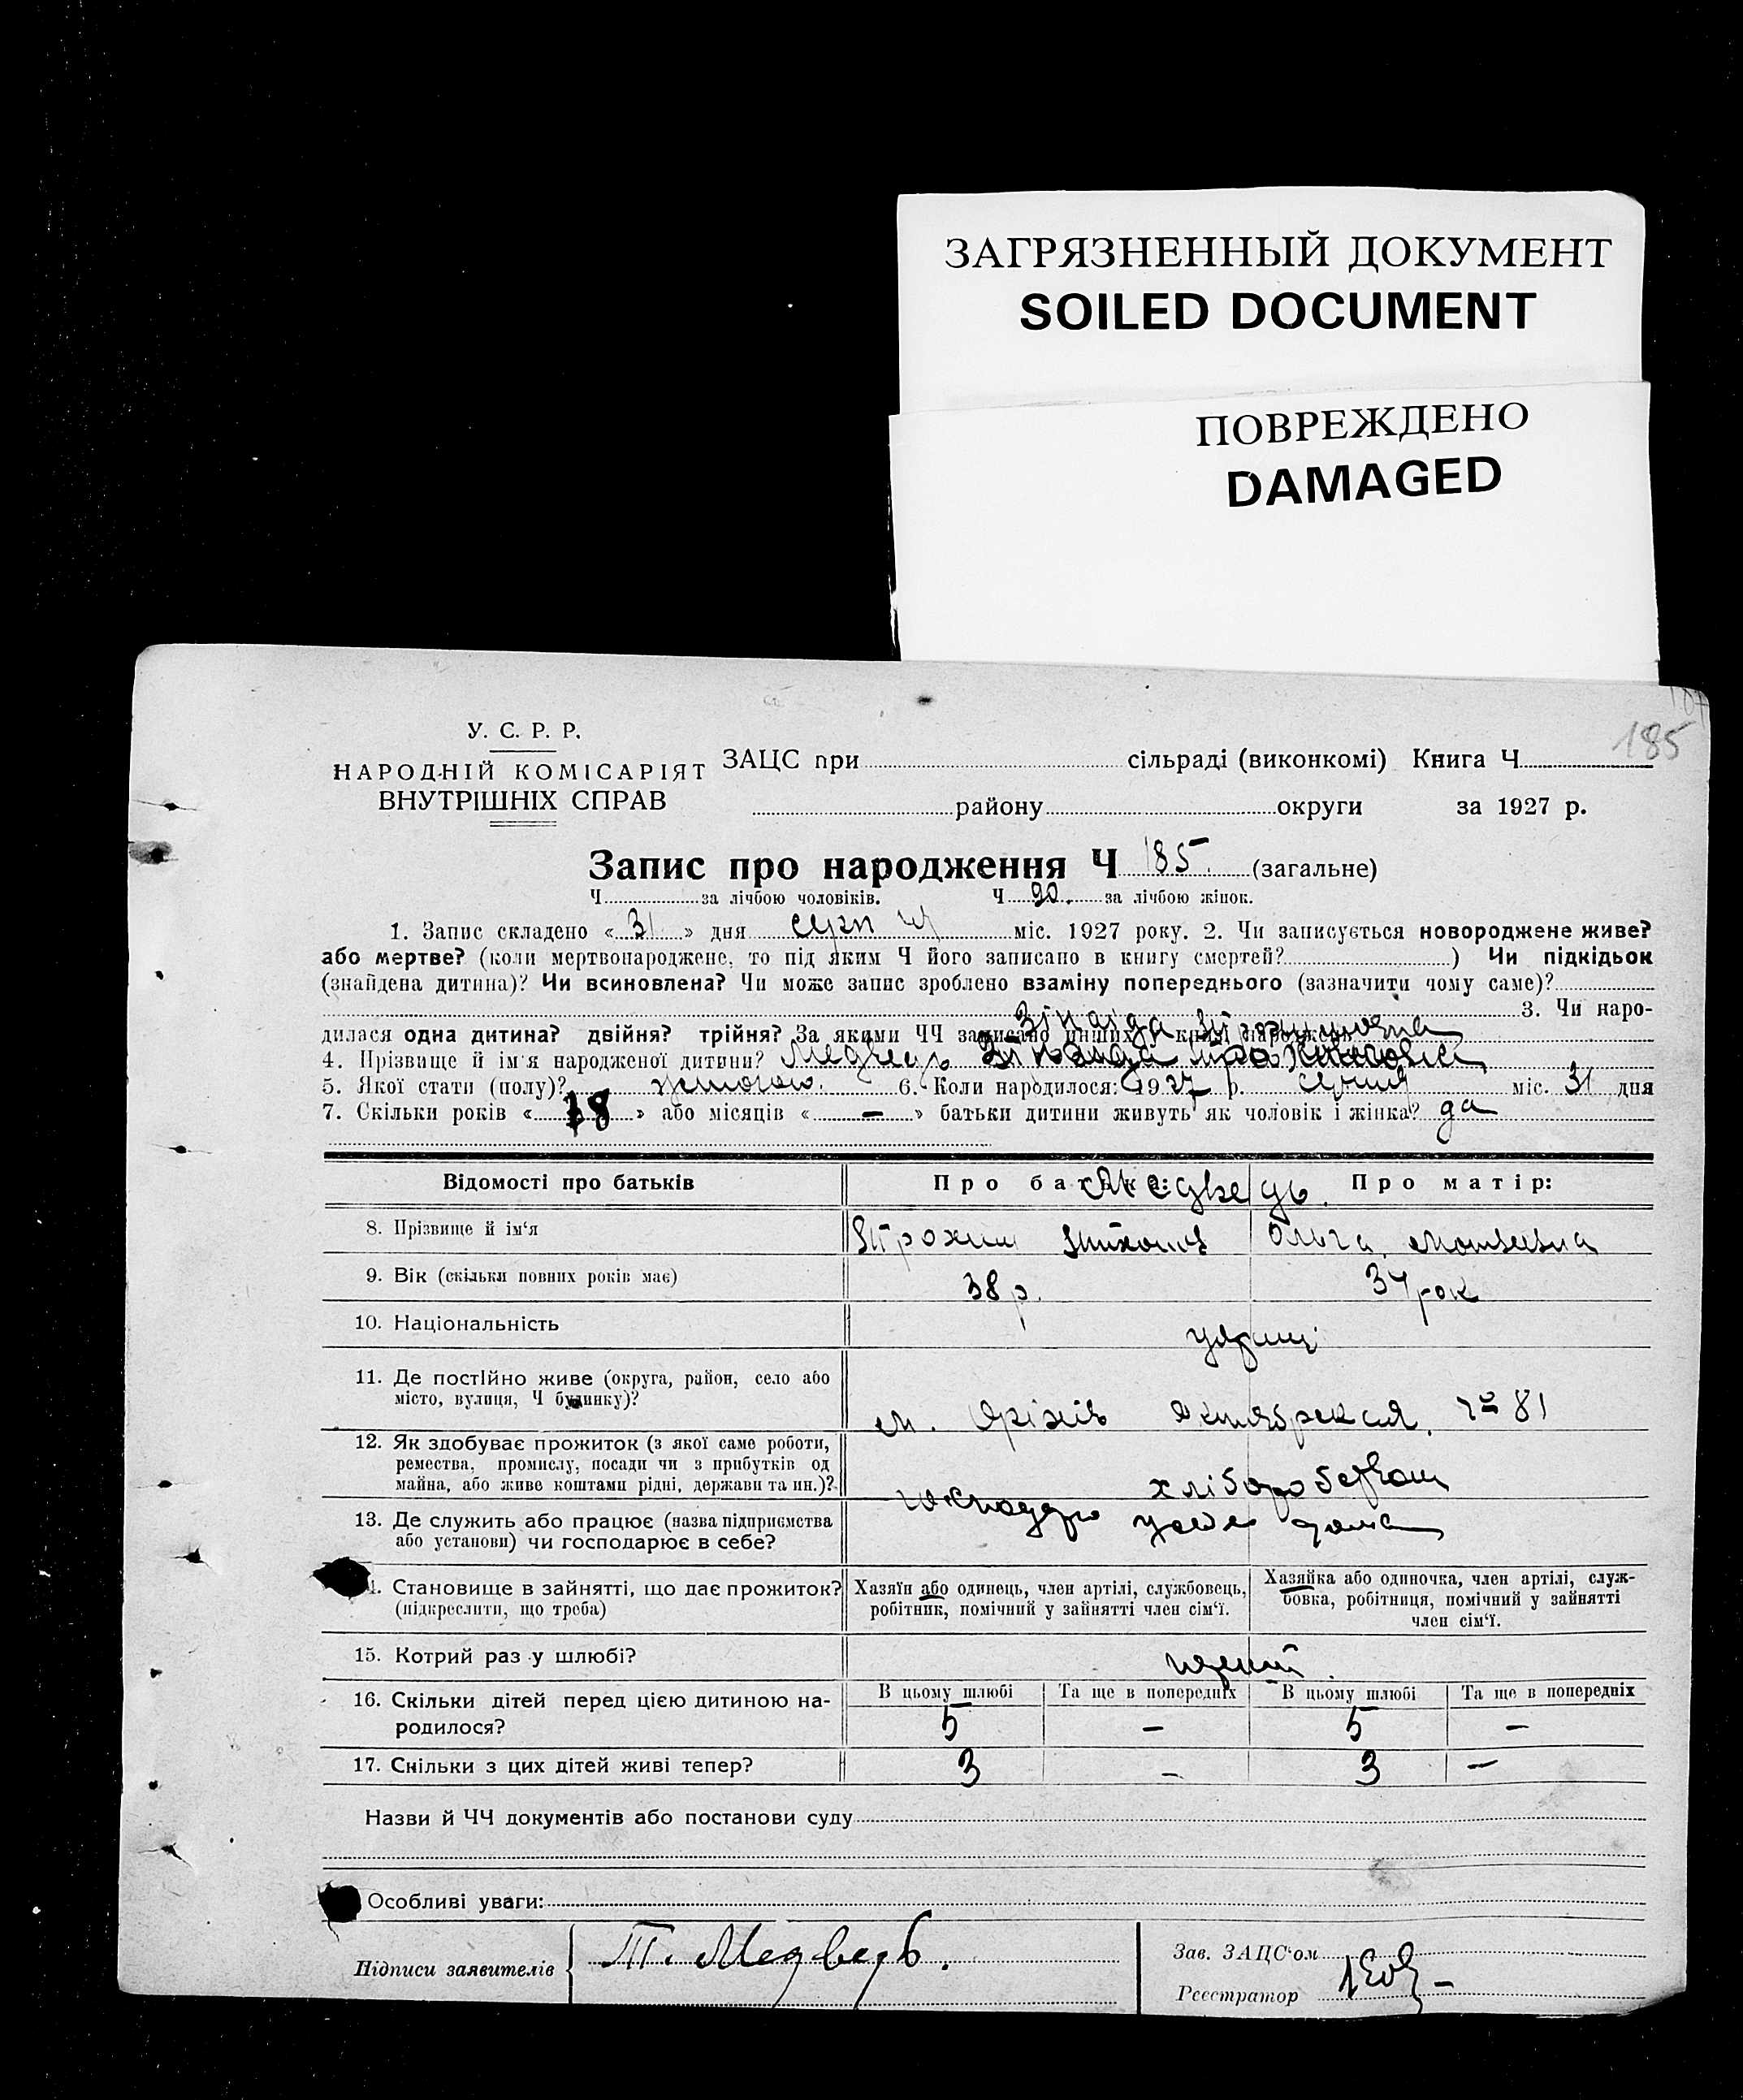 ЗАГРЯЗНЕННЫЙ ДОКУМЕНТ
SOILED DOCUMENT
ПОВРЕЖДЕНО
DAMAGED
185
У. С. Р. Р.
НАРОДНІЙ КОМІСАРІЯТ
ВНУТРІШНІХ СПРАВ
ЗАЦС при сільраді (виконкомі) Книга Ч
району округи за 1927 р.
Запис про народження Ч 185. (загальне)
Ч за лічбою чоловіків. Ч 90. за лічбою жінок.
1. Запис складено «31» дня серп міс. 1927 року. 2. Чи записується новороджене живе?
або мертве? (коли мертвонароджене, то під яким Ч його записано в книгу смертей? ) Чи підкідьок
(знайдена дитина)? Чи всиновлена? Чи може запис зроблено взаміну попереднього (зазначити чому саме)?
3. Чи наро-
дилася одна дитина? двійня? трійня? За якими ЧЧ записано инших у книзі народжень
Зінаїда
4. Прізвище й ім'я народженої дитини? Медведь
5. Якої стати (полу)? 6. Коли народилося: 1927 р. серпня міс. 31 дня
7. Скільки років «18» або місяців «—» батьки дитини живуть як чоловік і жінка? да
Відомості про батьків Про батька: Про матір:
Медведь.
8. Прізвище й ім'я Трохим Тихонов Ольга Мотвеевна
9. Вік (скільки повних років має) 38 р. 34 рок
10. Національність українці
11. Де постійно живе (округа, район, село або
місто, вулиця, Ч будинку)?
м. Оріхів Октябрская, 81
12. Як здобуває прожиток (з якої саме роботи,
ремества, промислу, посади чи з прибутків од
майна, або живе коштами рідні, держави та ин.)?
хліборобством
13. Де служить або працює (назва підприємства
або установи) чи господарює в себе?
у себе дома
14. Становище в зайнятті, що дає прожиток?
(підкреслити, що треба)
Хазяїн або одинець, член артілі, службовець,
робітник, помічний у зайнятті член сім'ї.
Хазяйка або одиночка, член артілі, служ-
бовка, робітниця, помічний у зайнятті
член сім'ї.
15. Котрий раз у шлюбі? первий.
16. Скільки дітей перед цією дитиною на-
родилося?
В цьому шлюбі Та ще в попередніх В цьому шлюбі Та ще в попередніх
5 — 5 —
17. Скільки з цих дітей живі тепер? 3 — 3 —
Назви й ЧЧ документів або постанови суду
Особливі уваги:
Підписи заявителів Т. Медведь.
Зав. ЗАЦС'ом
Реєстратор